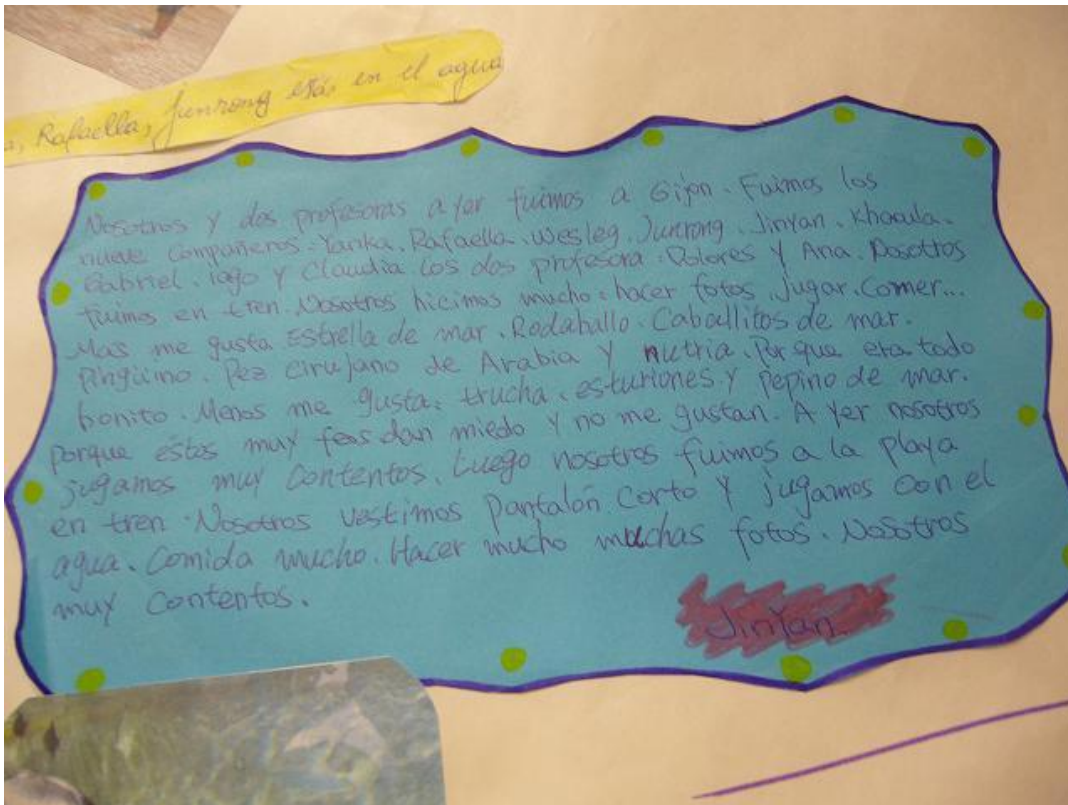 a, Rafaella, Junrong está en el agua
Nosotros y dos profesoras a yer fuimos a Gijon. Fuimos los
nueve compañeros. Yanka. Rafaella. Wesleg. Junrong. Jinyan. Khaoula.
Gabriel. iago y Claudia. Los dos profesora. Dolores y Ana. Nosotros
fuimos en tren. Nosotros hicimos mucho. hacer fotos. Jugar. Comer...
Mas me gusta Estrella de mar. Rodaballo. Caballitos de mar.
Pingüino. Pez cirujano de Arabia y nutria. Porque era todo
bonito. Menos me gusta: trucha. esturiones y pepino de mar.
porque estos muy feos dan miedo y no me gustan. A yer nosotros
jugamos muy contentos. Luego nosotros fuimos a la playa
en tren. Nosotros vestimos pantalón corto y jugamos con el
agua. Comida mucho. Hacer mucho muchas fotos. Nosotros
muy contentos.
JinYan.